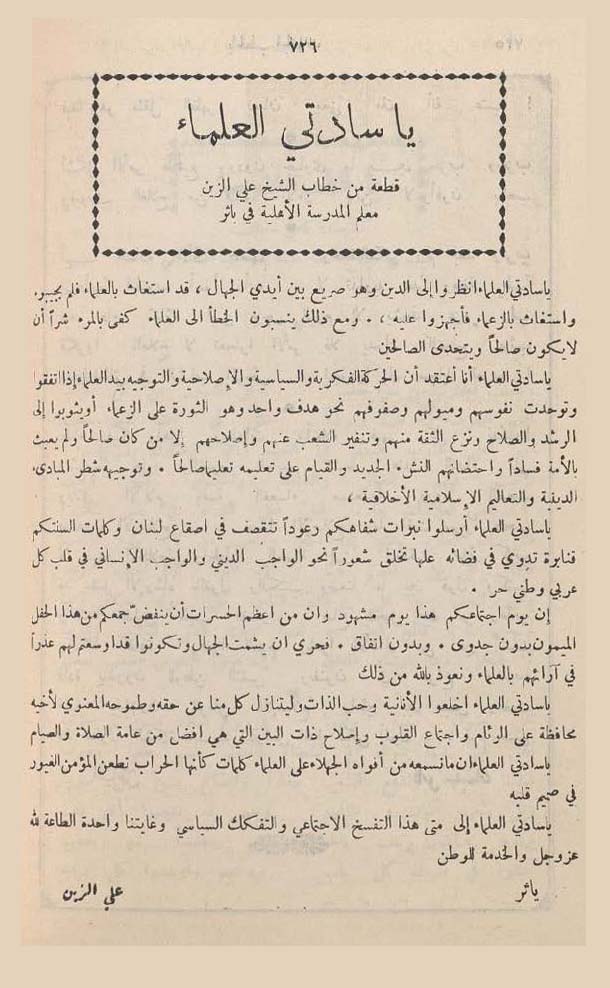 ٧٢٦
يا سادتي العلماء
قطعة من خطاب الشيخ علي الزين
معلم المدرسة الأهلية في ياثر
ياسادتي العلماء انظروا إلى الدين وهو صريع بين أيدي الجهال ، قد استغاث بالعلماء فلم يجيبوه
واستغاث بالزعماء فأجهزوا عليه ، . ومع ذلك ينسبون الخطأ الى العلماء كفى بالمرء شراً أن
لايكون صالحاً ويتحدى الصالحين
ياسادتي العلماء أنا أعتقد أن الحركة الفكرية والسياسية والإصلاحية والتوجيه بيد العلماء إذا اتفقوا
وتوحدت نفوسهم وميولهم وصفوفهم نحو هدف واحد وهو الثورة على الزعماء أو يثوبوا إلى
الرشد والصلاح ونزع الثقة منهم وتنفير الشعب عنهم وإصلاحهم إلا من كان صالحاً ولم يعبث
بالأمة فساداً واحتضانهم النشء الجديد والقيام على تعليمه تعليماً صالحاً . وتوجيهه شطر المبادىء
الدينية والتعاليم الإسلامية الأخلاقية ،
ياسادتي العلماء أرسلوا نبرات شفاهكم رعوداً تتقصف في اصقاع لبنان وكلمات السنتكم
قنابرة تدوي في فضائه علها تخلق شعوراً نحو الواجب الديني والواجب الإنساني في قلب كل
عربي وطني حر .
إن يوم اجتماعكم هذا يوم مشهود وان من اعظم الحسرات أن ينفضّ جمعكم من هذا الحفل
الميمون بدون جدوى . وبدون اتفاق . فحري ان يشمت الجهال وتكونوا قد اوسعتم لهم عذراً
في آرائهم بالعلماء ونعوذ بالله من ذلك
ياسادتي العلماء اخلعوا الأنانية وحب الذات وليتنازل كل منا عن حقه وطموحه المعنوي لأخيه
محافظة على الوئام واجتماع القلوب وإصلاح ذات البين التي هي افضل من عامة الصلاة والصيام
ياسادتي العلماء ان مانسمعه من أفواه الجهلاء على العلماء كلمات كأنها الحراب تطعن المؤمن الغيور
في صميم قلبه
ياسادتي العلماء إلى متى هذا التفسخ الاجتماعي والتفكك السياسي وغايتنا واحدة الطاعة لله
عز وجل والخدمة للوطن
ياثر علي الزين